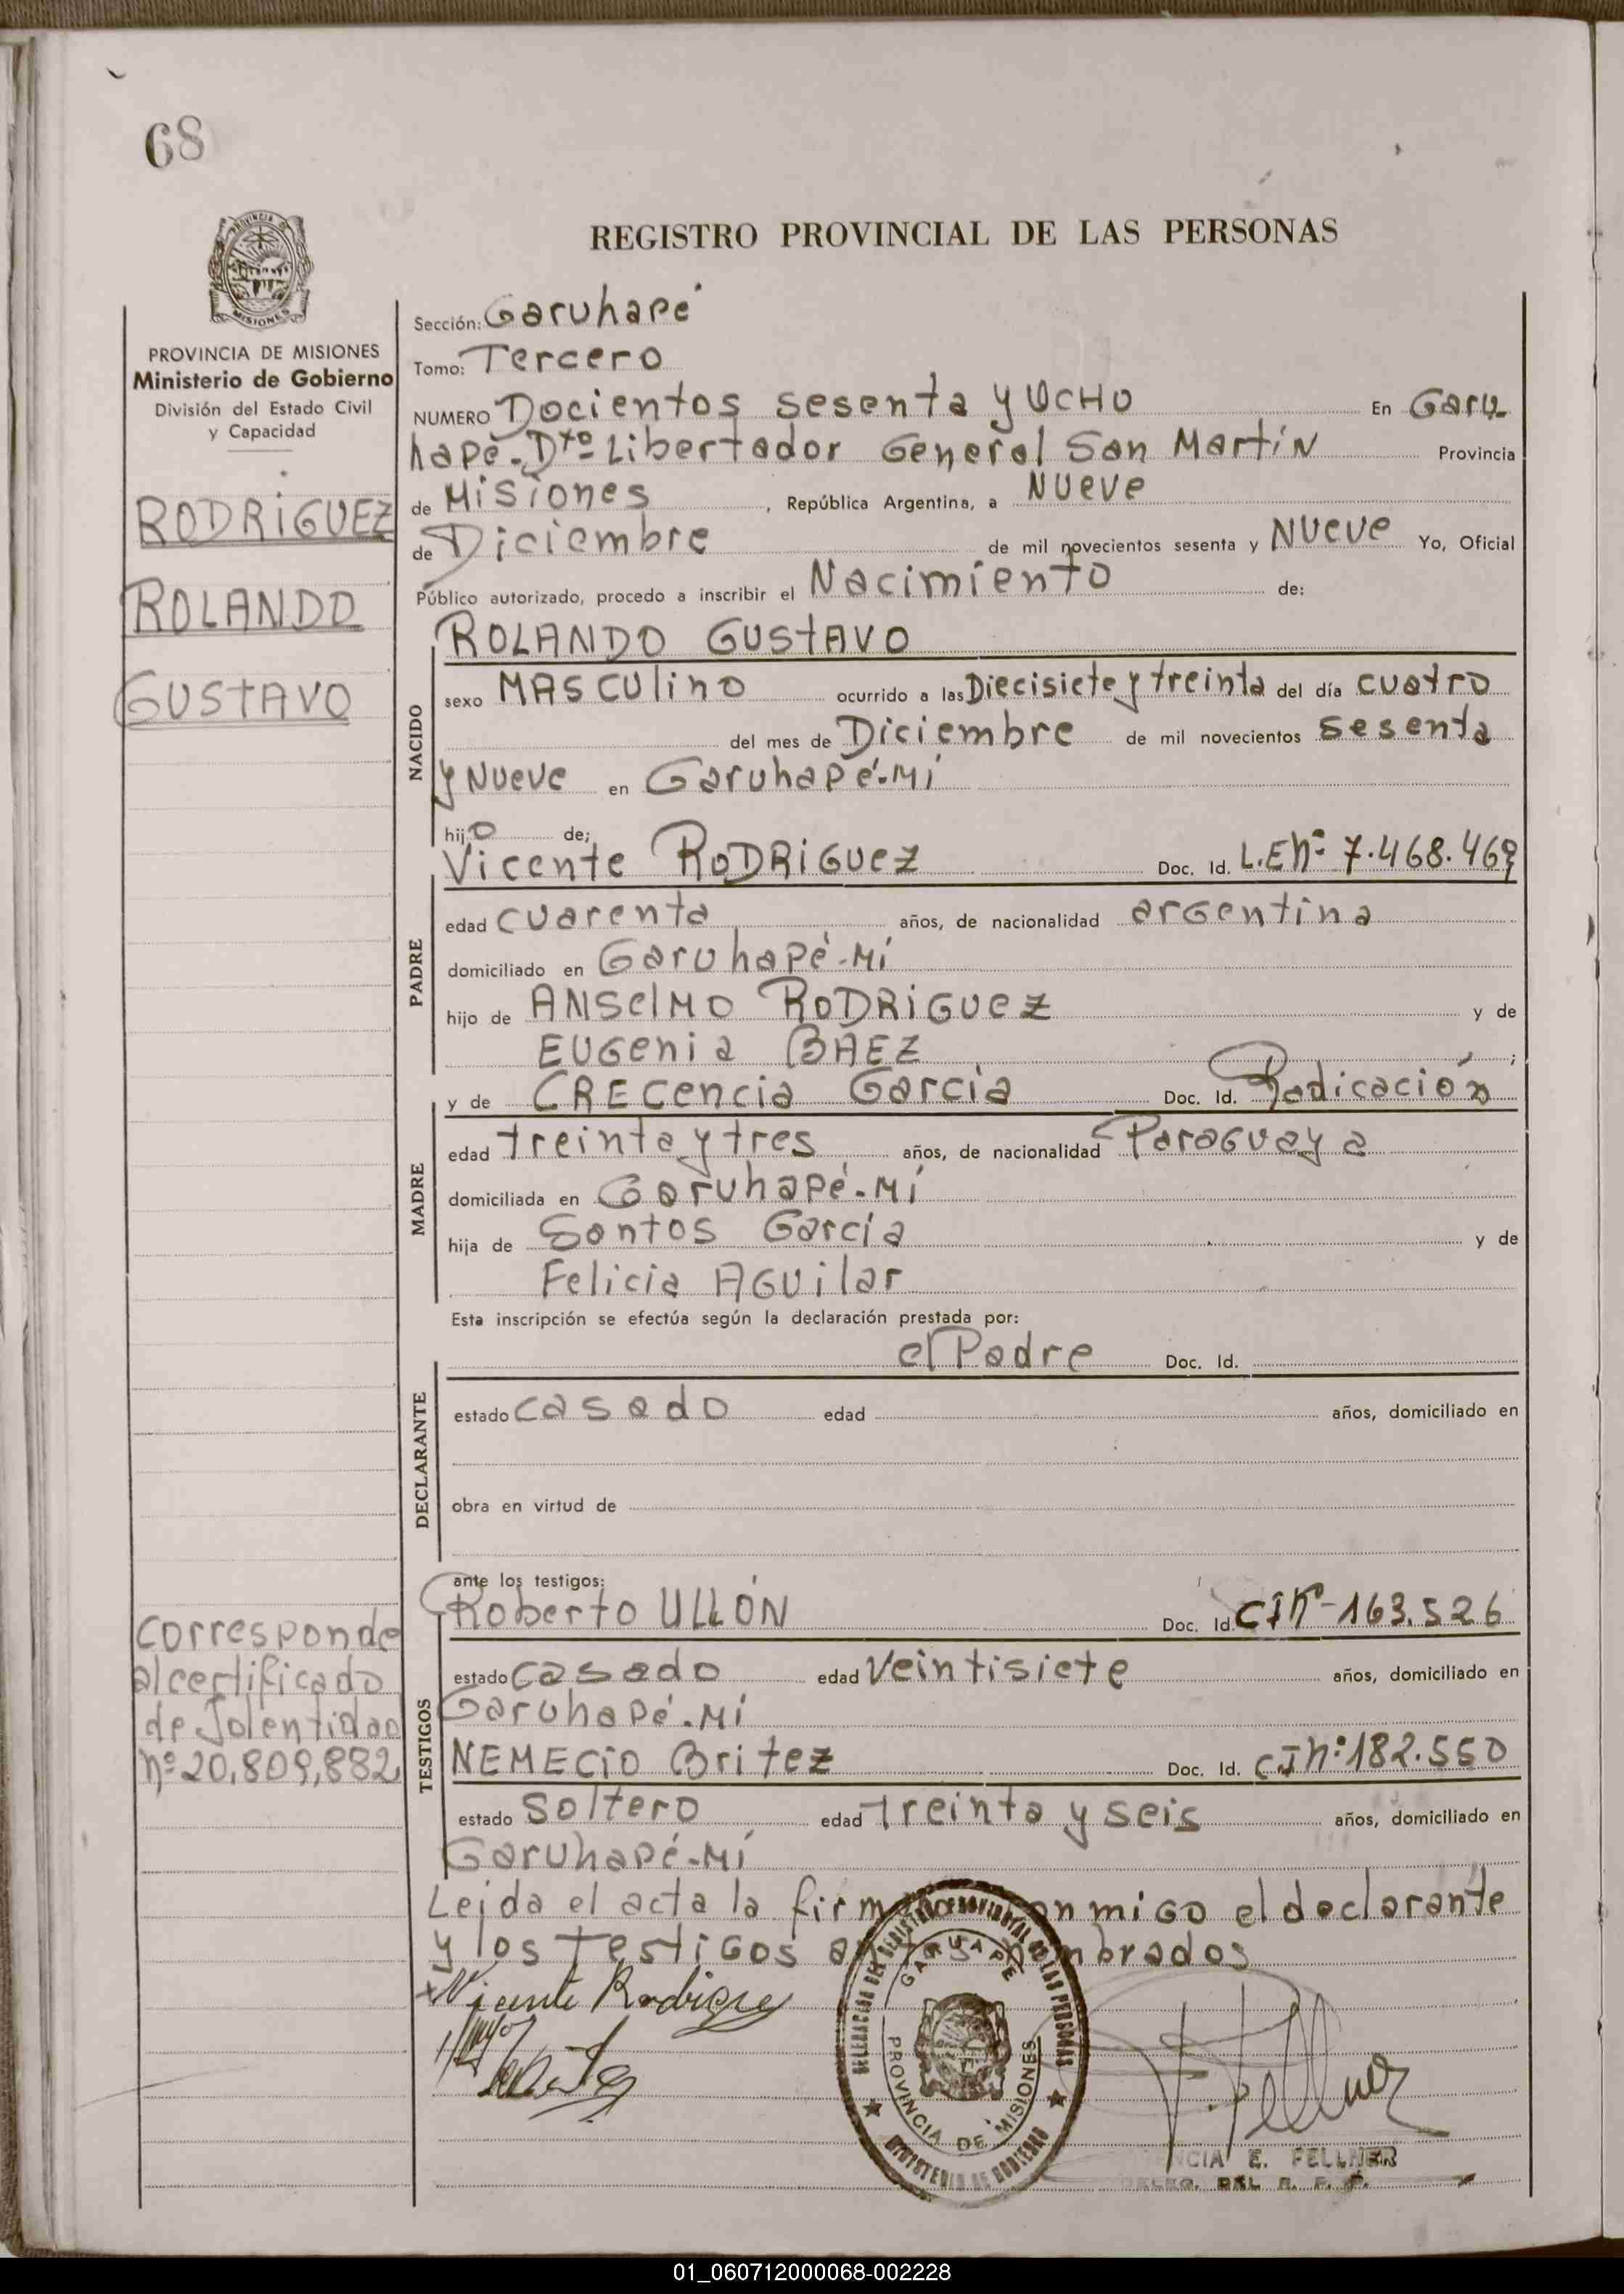 68
REGISTRO PROVINCIAL DE LAS PERSONAS
PROVINCIA DE MISIONES
Ministerio de Gobierno
División del Estado Civil
y Capacidad
RODRIGUEZ
ROLANDO
GUSTAVO
Sección: Garuhapé
Tomo: Tercero
NUMERO Docientos sesenta y OCHO En Garu-
hapé-Dto Libertador General San Martín Provincia
de Misiones, República Argentina, a Nueve
de Diciembre de mil novecientos sesenta y Nueve Yo, Oficial
Público autorizado, procedo a inscribir el Nacimiento de:
NACIDO
ROLANDO GUSTAVO
sexo MASCULINO ocurrido a las Diecisiete y treinta del día cuatro
del mes de Diciembre de mil novecientos sesenta
y Nueve en Garuhapé-Mí
hijo de;
PADRE
Vicente RODRIGUEZ Doc. Id. L.E nº 7.468.469
edad cuarenta años, de nacionalidad argentina
domiciliado en Garuhapé-Mí
hijo de ANSELMO RODRIGUEZ y de
EUGenia BAEZ ;
MADRE
y de CRECencia García Doc. Id. Radicación
edad treinta y tres años, de nacionalidad Paraguaya
domiciliada en Garuhapé-Mí
hija de Santos García y de
Felicia AGUilar
Esta inscripción se efectúa según la declaración prestada por:
DECLARANTE
el Padre Doc. Id.
estado casado edad años, domiciliado en
obra en virtud de
TESTIGOS
ante los testigos:
Roberto ULLÓN Doc. Id. CI Nº 163.526
estado casado edad veintisiete años, domiciliado en
Garuhapé-Mí
NEMECIO Britez Doc. Id. CI nº 182.550
estado soltero edad treinta y seis años, domiciliado en
Garuhapé-Mí
Corresponde
al certificado
de Identidad
nº 20,809,882
Leida el acta la firman conmigo el declarante
y los testigos antes nombrados
Vicente Rodrigue
GARUAPE
PROVINCIA DE MISIONES
MINISTERIO DE GOBIERNO
E. FELLNER
DELEG. DEL R. P. P.
01_060712000068-002228